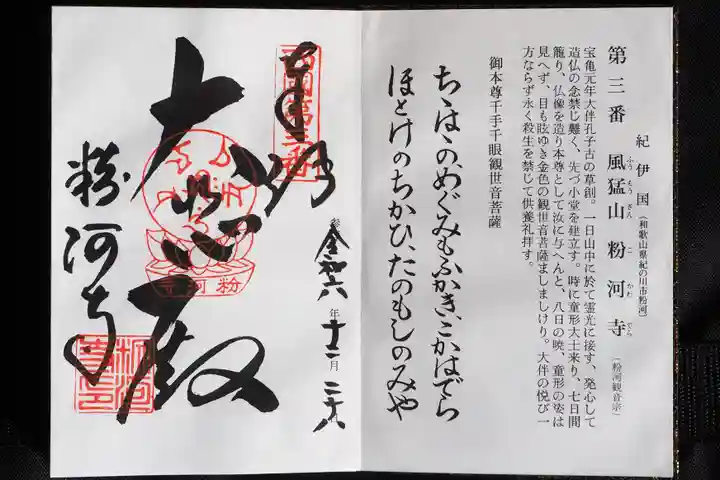 紀伊国(和歌山県紀の川市粉河)
第三番 風猛山粉河寺 (粉河観音宗)
ふうもうざんこかわでら
宝亀元年大伴孔子古の草創。一日山中に於て霊光に接す、発心して
造仏の念禁じ難く、先づ小堂を建立す。時に童形大士来り、七日間
籠り、仏像を造り本尊として汝に与へんと、八日の暁、童形の姿は
見へず、目も眩ゆき金色の観世音菩薩ましましけり。大伴の悦び一
方ならず永く殺生を禁じて供養礼拝す。
御本尊千手千眼観世音菩薩
ちゝはゝのめぐみもふかきこかはでら
ほとけのちかひ、たのもしのみや
西国第三番
奉拝
令和六年十二月二十八
大悲殿
粉河寺
粉河寺